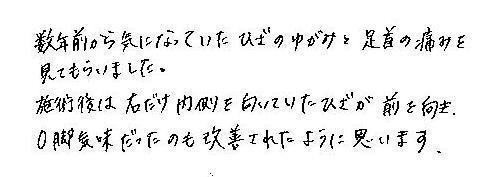 数年前から気になっていたひざのゆがみと足首の痛みを
見てもらいました。
施術後は右だけ内側を向いていたひざが前を向き、
O脚気味だったのも改善されたように思います。